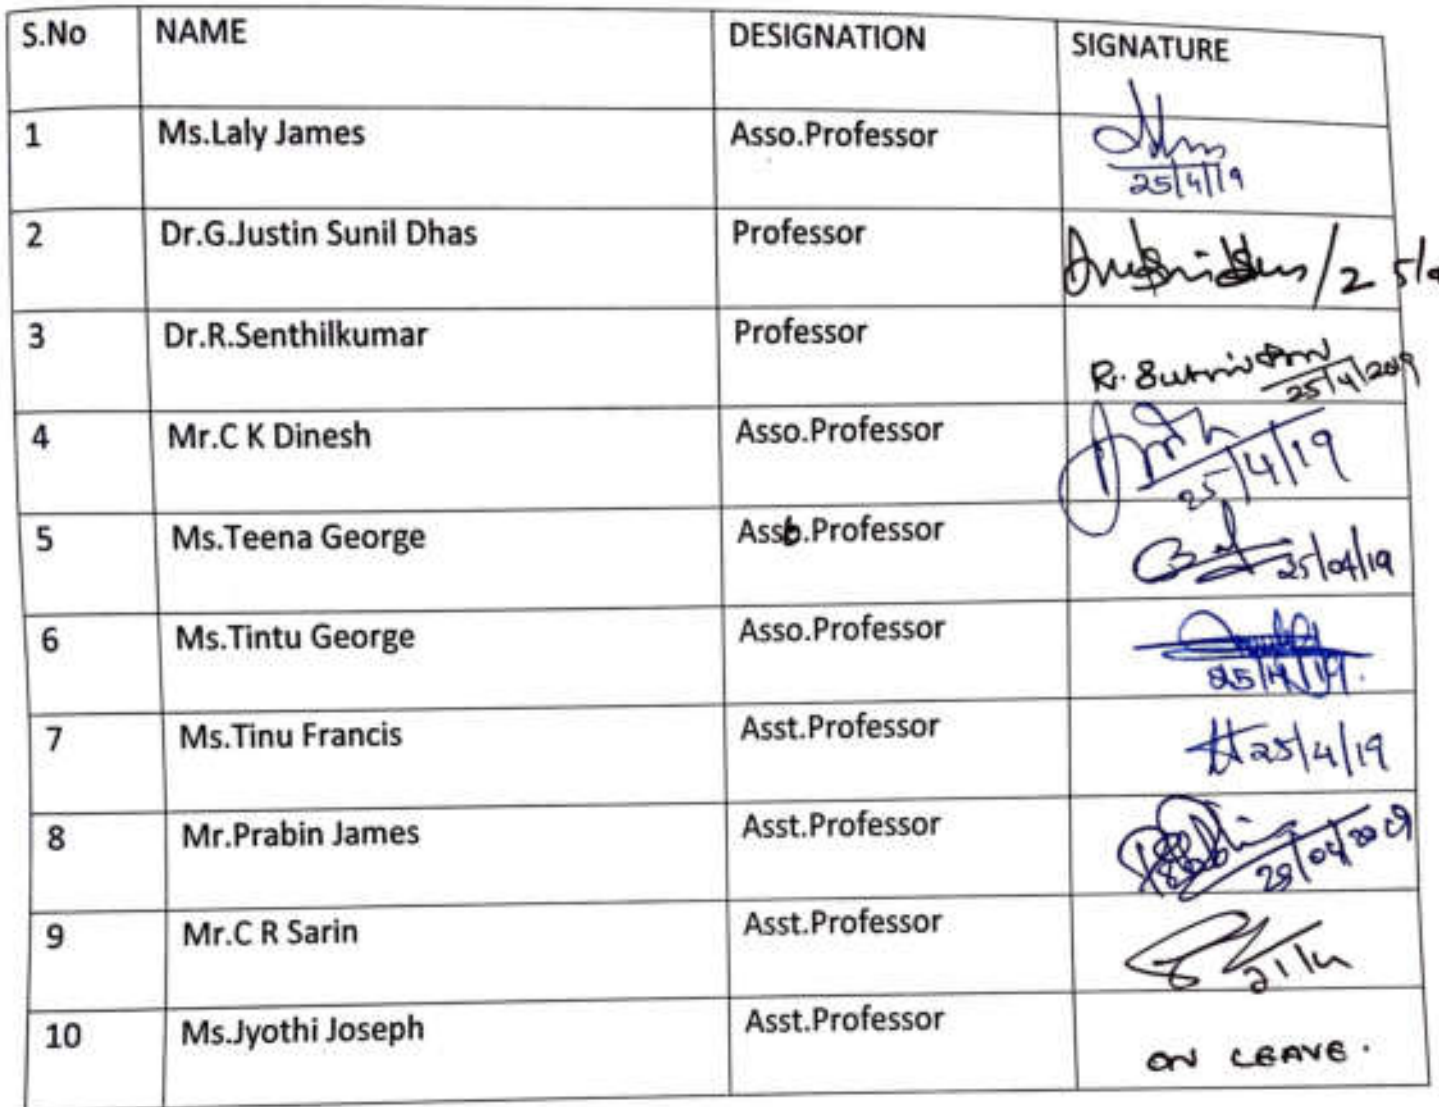 S.No NAME DESIGNATION SIGNATURE
1 Ms.Laly James Asso.Professor
25/4/19
2 Dr.G.Justin Sunil Dhas Professor
3 Dr.R.Senthilkumar Professor
25/4/2019
4 Mr.C K Dinesh Asso.Professor
25/4/19
5 Ms.Teena George Professor 25/04/19
6 Ms.Tintu George Asso.Professor
25/4/19.
7 Ms.Tinu Francis Asst.Professor 25/4/19
8 Mr.Prabin James Asst.Professor
9 Mr.C R Sarin Asst.Professor
10 Ms.Jyothi Joseph Asst.Professor ON LEAVE.